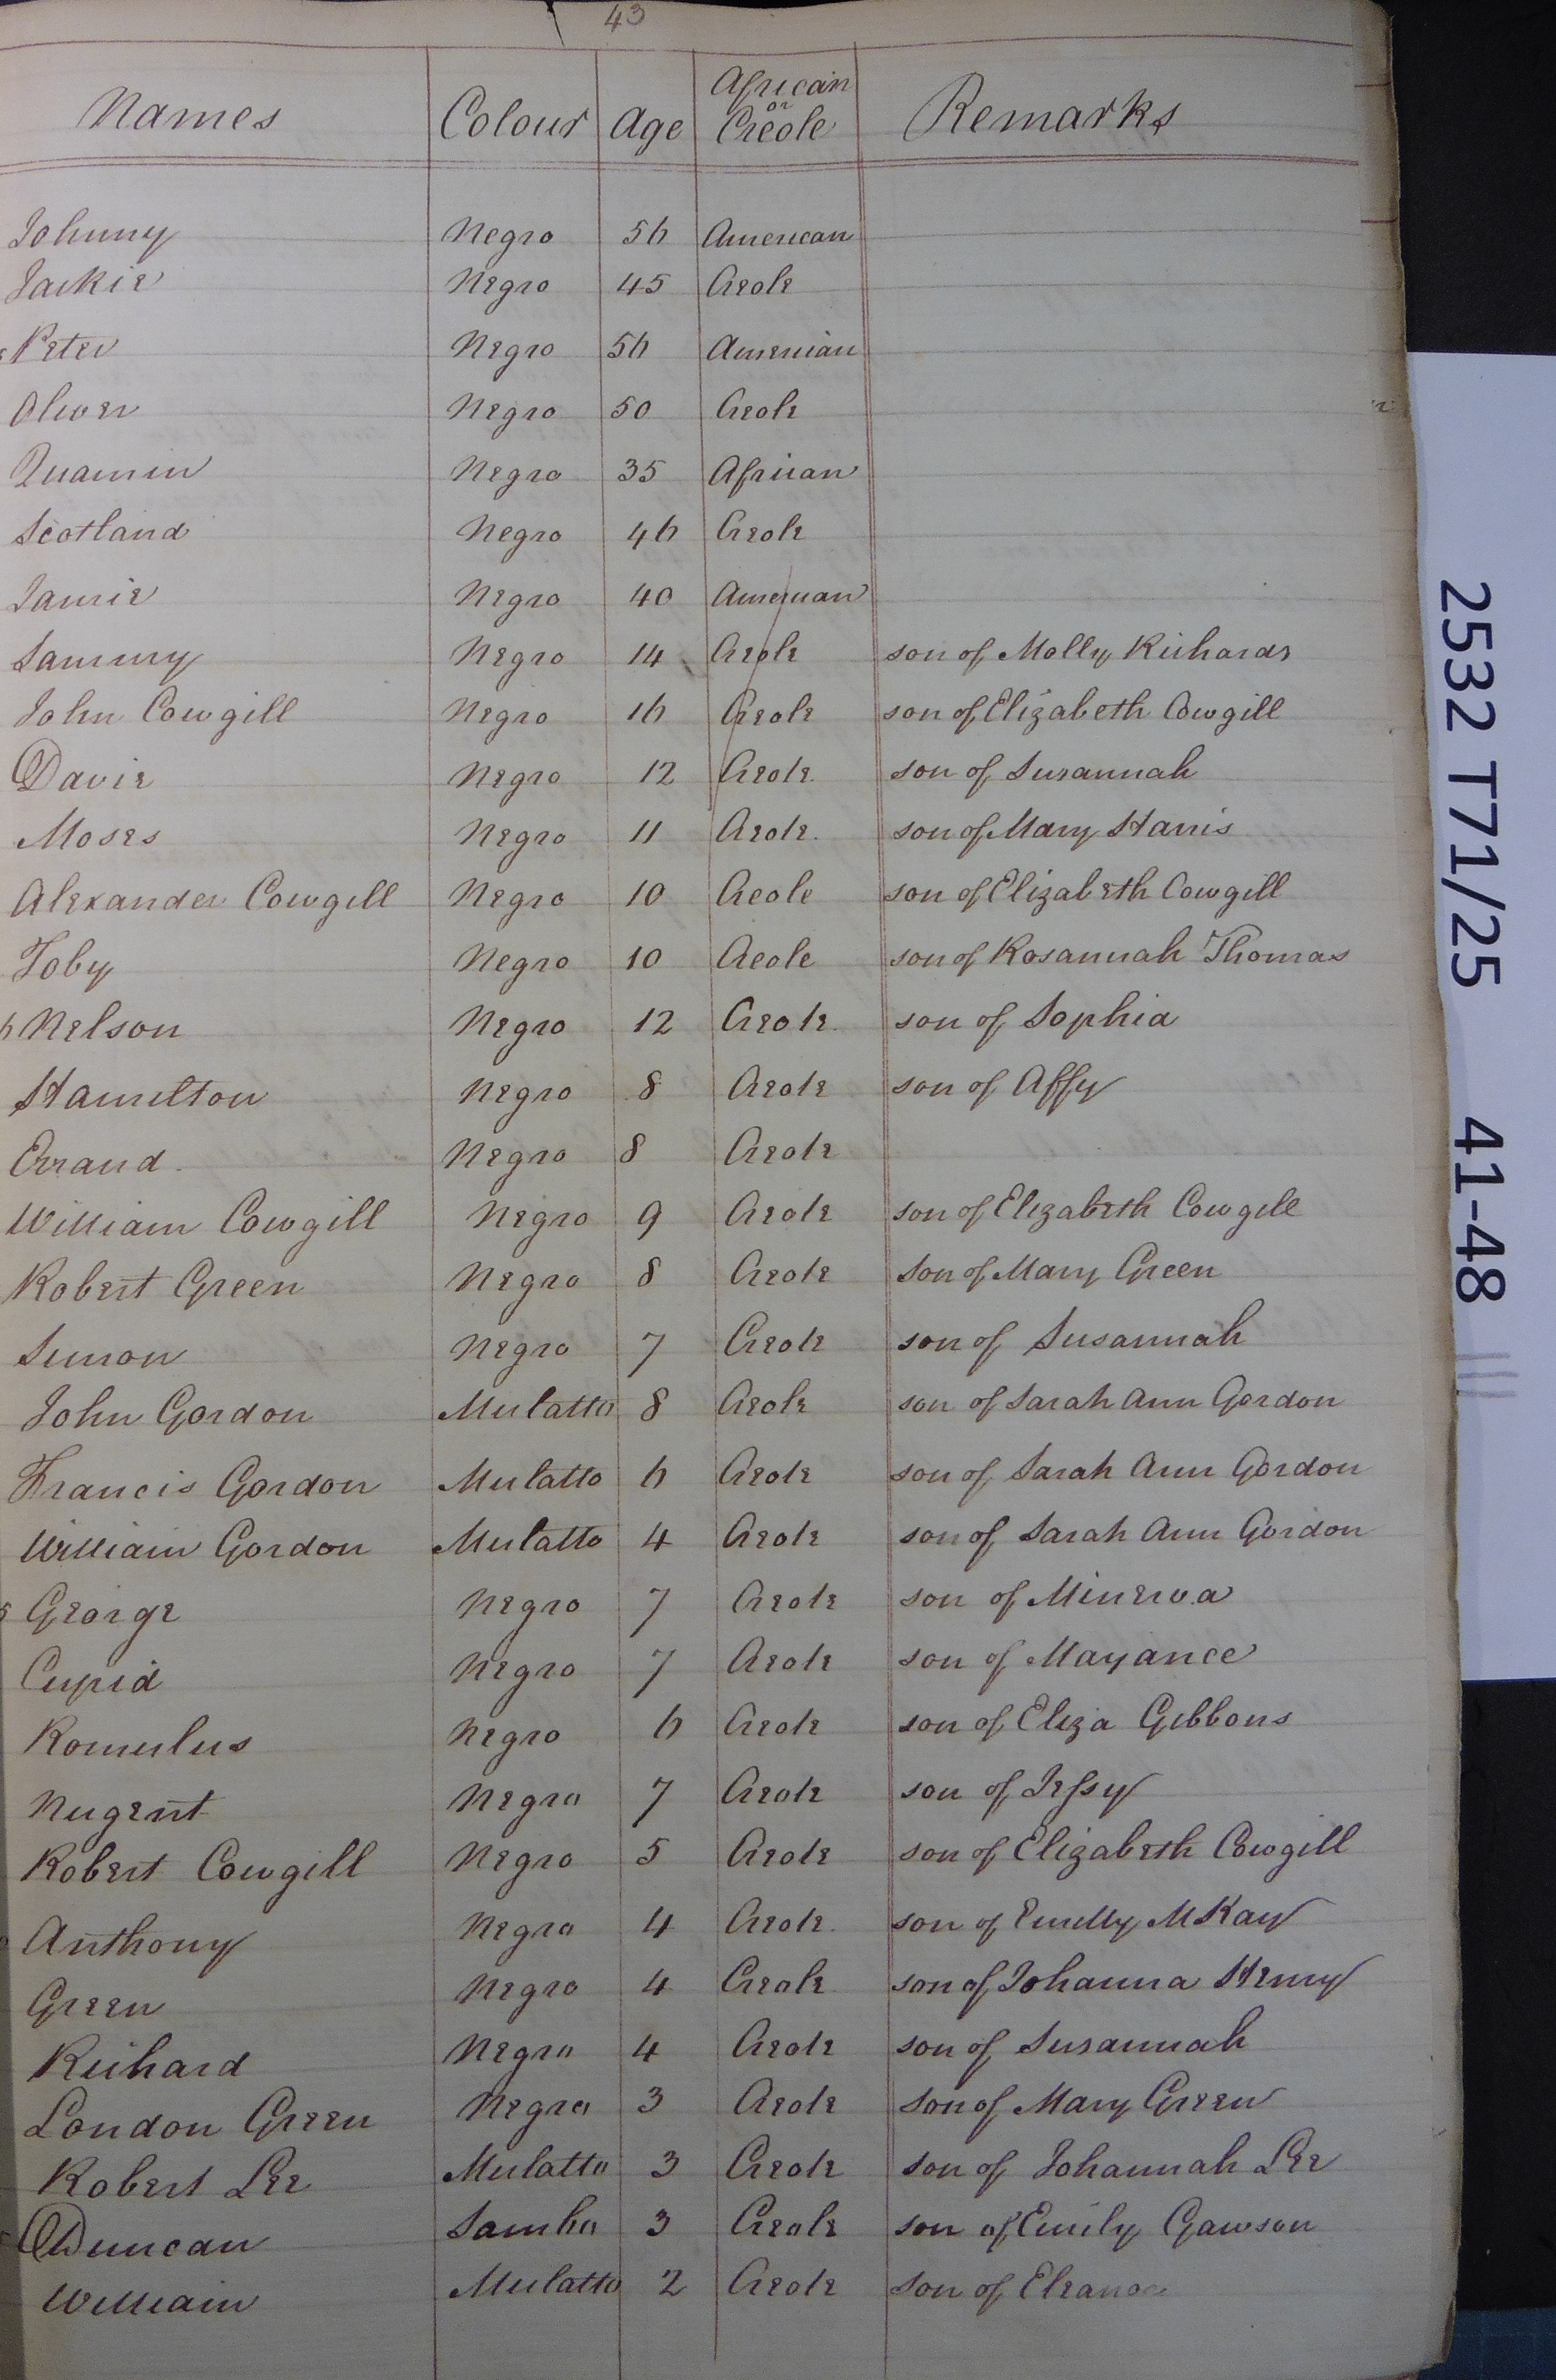 43
Names Colour Age African or Creole Remarks
Johnny Negro 56 American
Jackie Negro 45 Creole
Peter Negro 56 American
Oliver Negro 50 Creole
Quamin Negro 35 African
Scotland Negro 46 Creole
Jamie Negro 40 American
Sammy Negro 14 Creole son of Molly Richards
John Cowgill Negro 16 Creole son of Elizabeth Cowgill
Davie Negro 12 Creole son of Susannah
Moses Negro 11 Creole son of Mary Harris
Alexander Cowgill Negro 10 Creole son of Elizabeth Cowgill
Toby Negro 10 Creole son of Rosannah Thomas
Nelson Negro 12 Creole son of Sophia
Hamilton Negro 8 Creole son of Affy
Errand Negro 8 Creole
William Cowgill Negro 9 Creole son of Elizabeth Cowgill
Robert Green Negro 8 Creole son of Mary Green
Simon Negro 7 Creole son of Susannah
John Gordon Mulatto 8 Creole son of Sarah Ann Gordon
Francis Gordon Mulatto 6 Creole son of Sarah Ann Gordon
William Gordon Mulatto 4 Creole son of Sarah Ann Gordon
George Negro 7 Creole son of Minerva
Cupid Negro 7 Creole son of Mayance
Romulus Negro 6 Creole son of Eliza Gibbons
Nugent Negro 7 Creole son of Jessy
Robert Cowgill Negro 5 Creole son of Elizabeth Cowgill
Anthony Negro 4 Creole son of Emilly McKay
Green Negro 4 Creole son of Johanna Henry
Richard Negro 4 Creole son of Susannah
London Green Negro 3 Creole son of Mary Green
Robert Lee Mulatto 3 Creole son of Johannah Lee
Duncan Sambo 3 Creole son of Emily Gawson
William Mulatto 2 Creole son of Eleanor
2532 T71/25 41-48